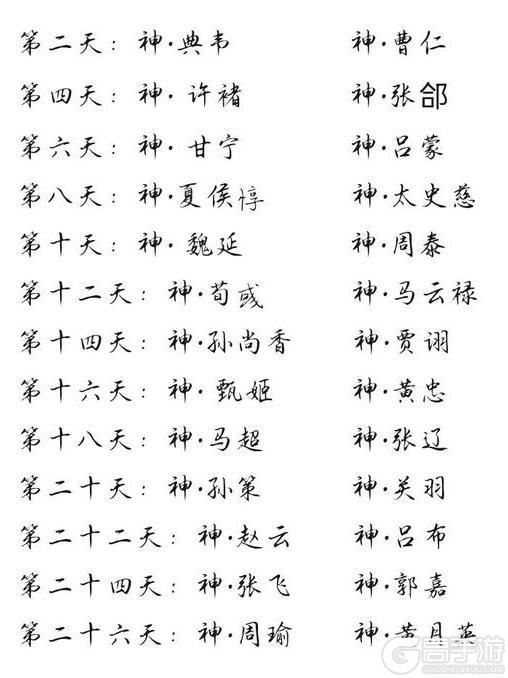 第二天：神·典韦 神·曹仁
第四天：神·许褚 神·张郃
第六天：神·甘宁 神·吕蒙
第八天：神·夏侯惇 神·太史慈
第十天：神·魏延 神·周泰
第十二天：神·荀彧 神·马云禄
第十四天：神·孙尚香 神·贾诩
第十六天：神·甄姬 神·黄忠
第十八天：神·马超 神·张辽
第二十天：神·孙策 神·关羽
第二十二天：神·赵云 神·吕布
第二十四天：神·张飞 神·郭嘉
第二十六天：神·周瑜 神·黄月英
高手游